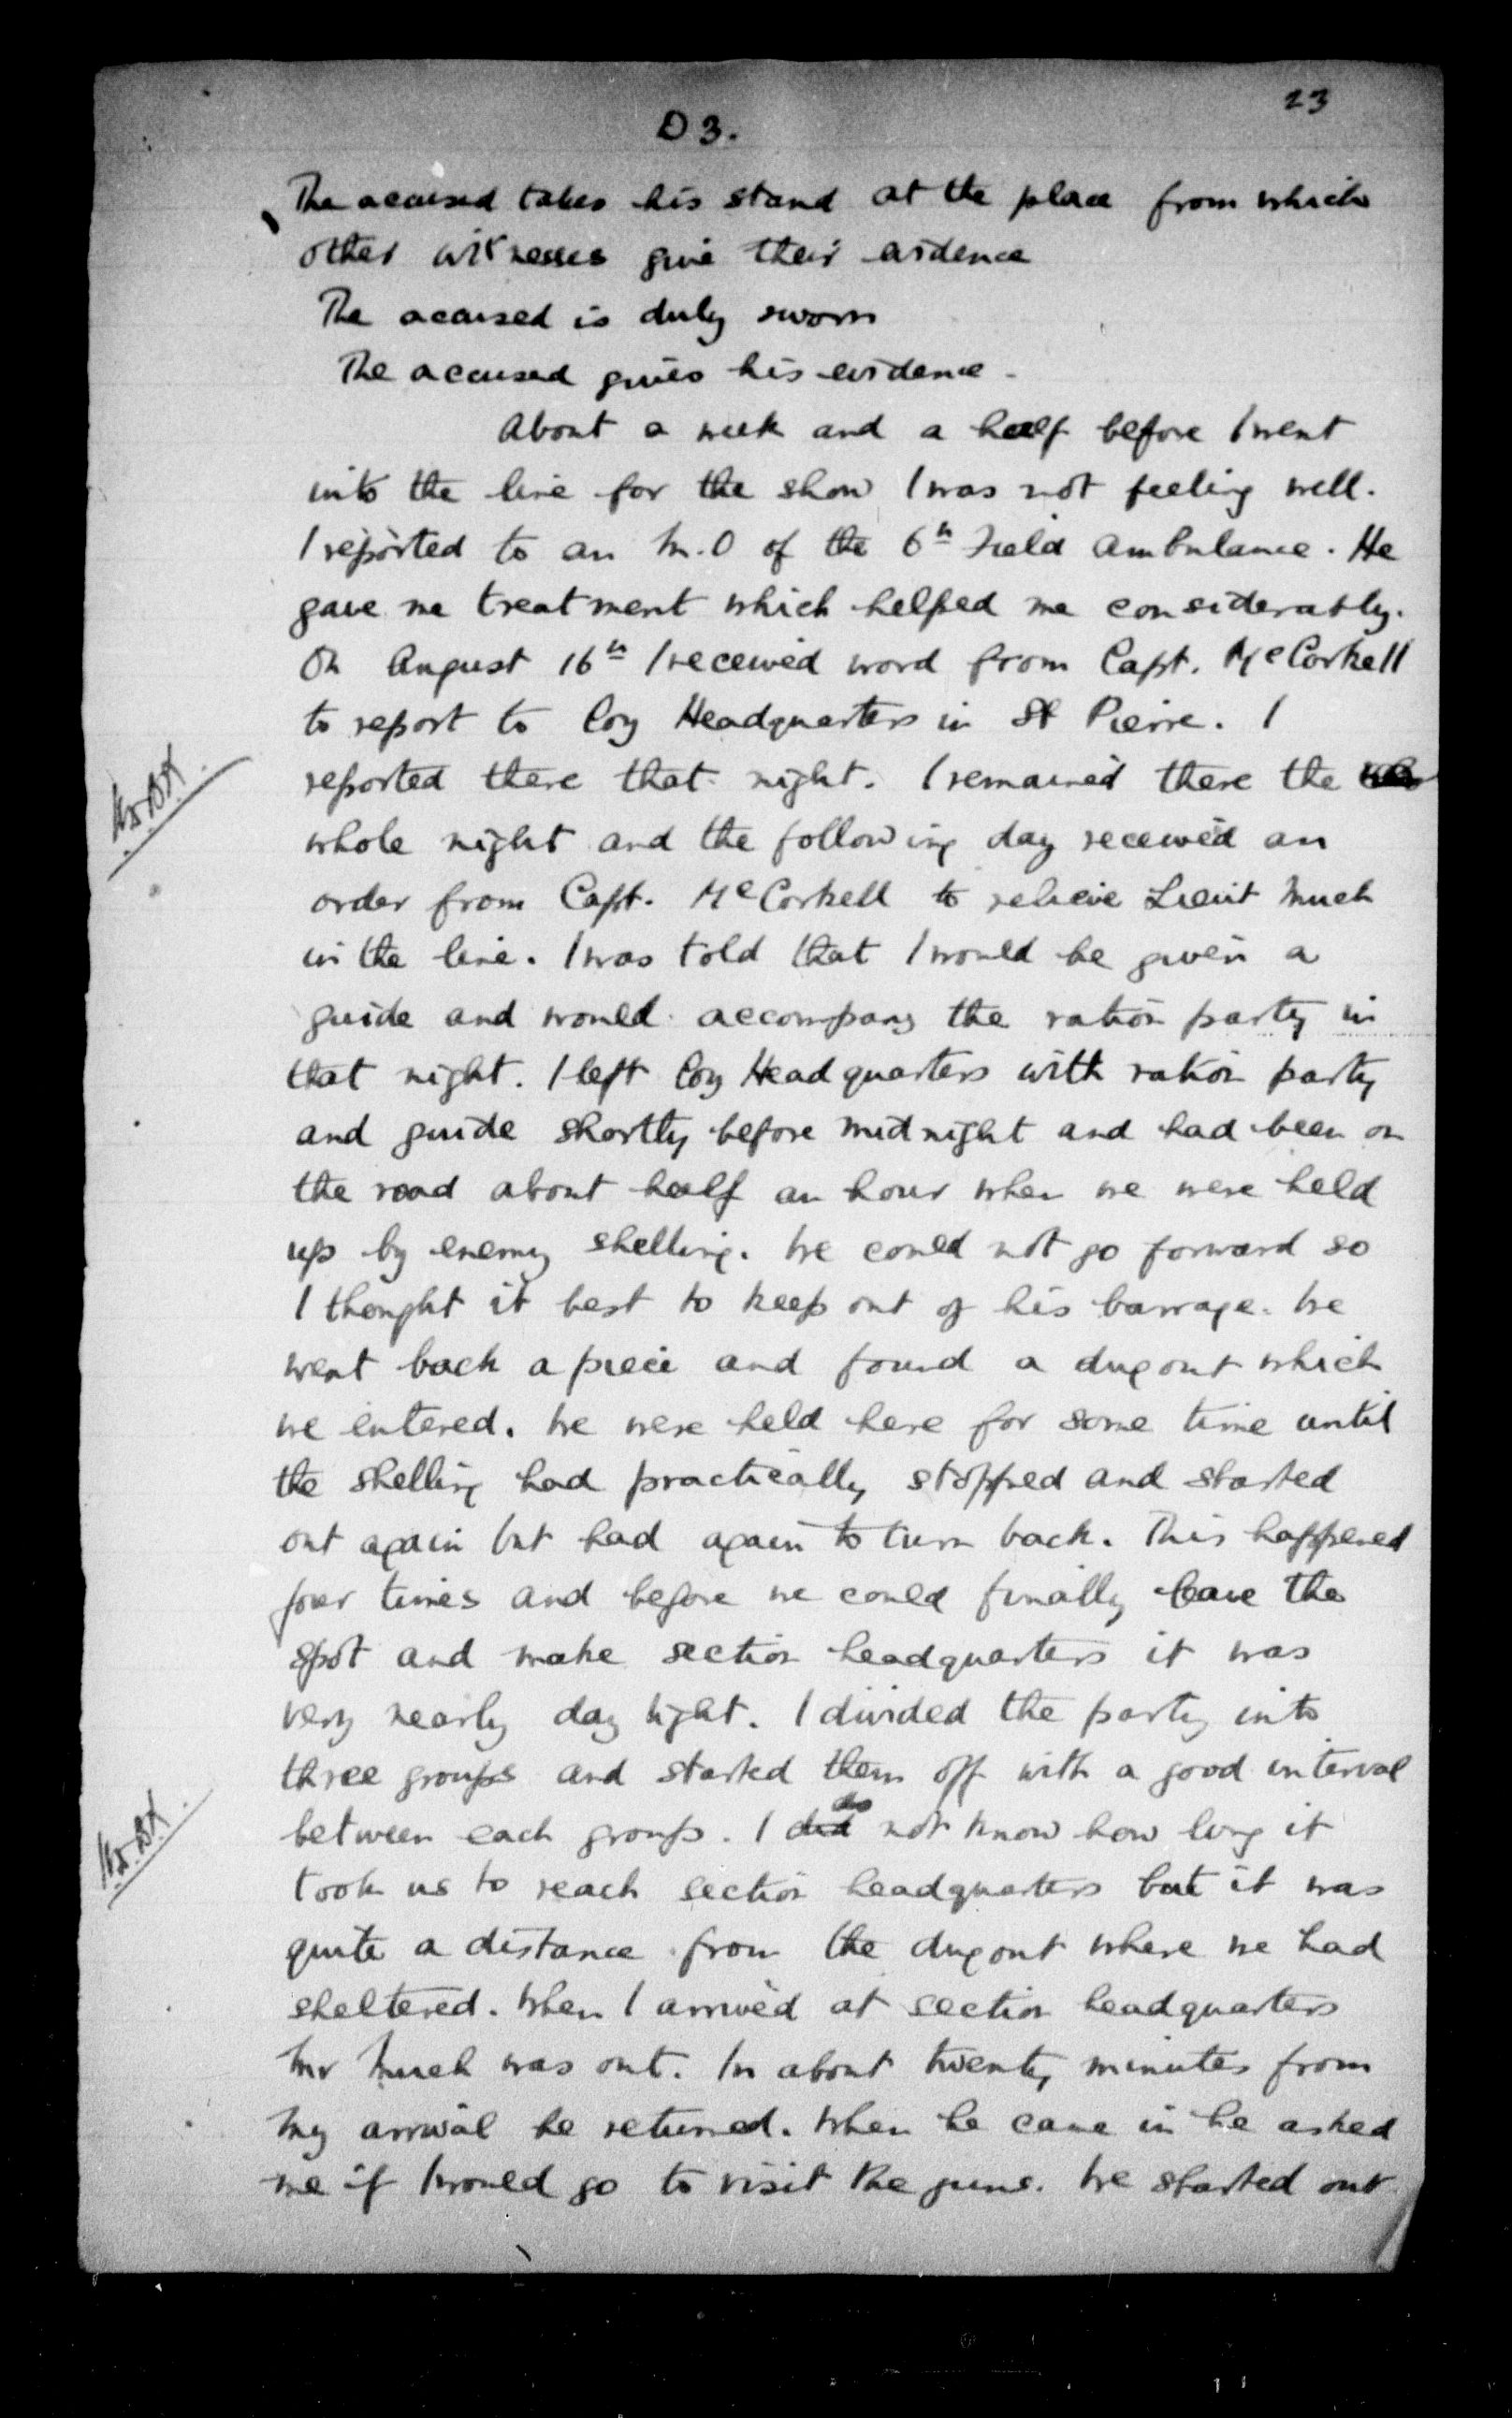 23
D 3.
The accused takes his stand at the place from which
other witnesses give their evidence
The accused is duly sworn
The accused gives his evidence -
About a week and a half before I went
into the line for the show I was not feeling well.
I reported to an M.O of the 6th Field Ambulance. He
gave me treatment which helped me considerably.
On August 16th I received word from Capt. McCorkell
to report to Coy Headquarters in St Pierre. I
reported there that night. I remained there the
whole night and the following day received an
order from Capt. McCorkell to relieve Lieut Much
in the line. I was told that I would be given a
guide and would accompany the ration party in
that night. I left Coy Headquarters with ration party
and guide shortly before midnight and had been on
the road about half an hour when we were held
up by enemy shelling. We could not go forward so
I thought it best to keep out of his barrage. We
went back a piece and found a dugout which
we entered. We were held here for some time until
the shelling had practically stopped and started
out again but had again to turn back. This happened
four times and before we could finally leave the
spot and make section headquarters it was
very nearly day light. I divided the party into
three groups and started them off with a good interval
between each group. I did do not know how long it
took us to reach section headquarters but it was
quite a distance from the dugout where we had
sheltered. When I arrived at section headquarters
Mr Much was out. In about twenty minutes from
my arrival he returned. When he came in he asked
me if I would go to visit the guns. We started out